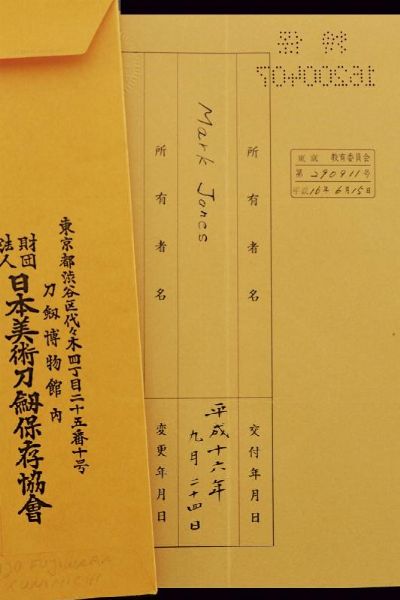 東京 教育委員会
第 290911 号
平成 16年 6月 15日
所有者名
交付年月日
Mark Jones
平成十六年
九月二十四日
所有者名
変更年月日
東京都渋谷区代々木四丁目二十五番十号
刀劔博物館内
財団
法人
日本美術刀劔保存協會
FUJIWARA
KUNIMICHI